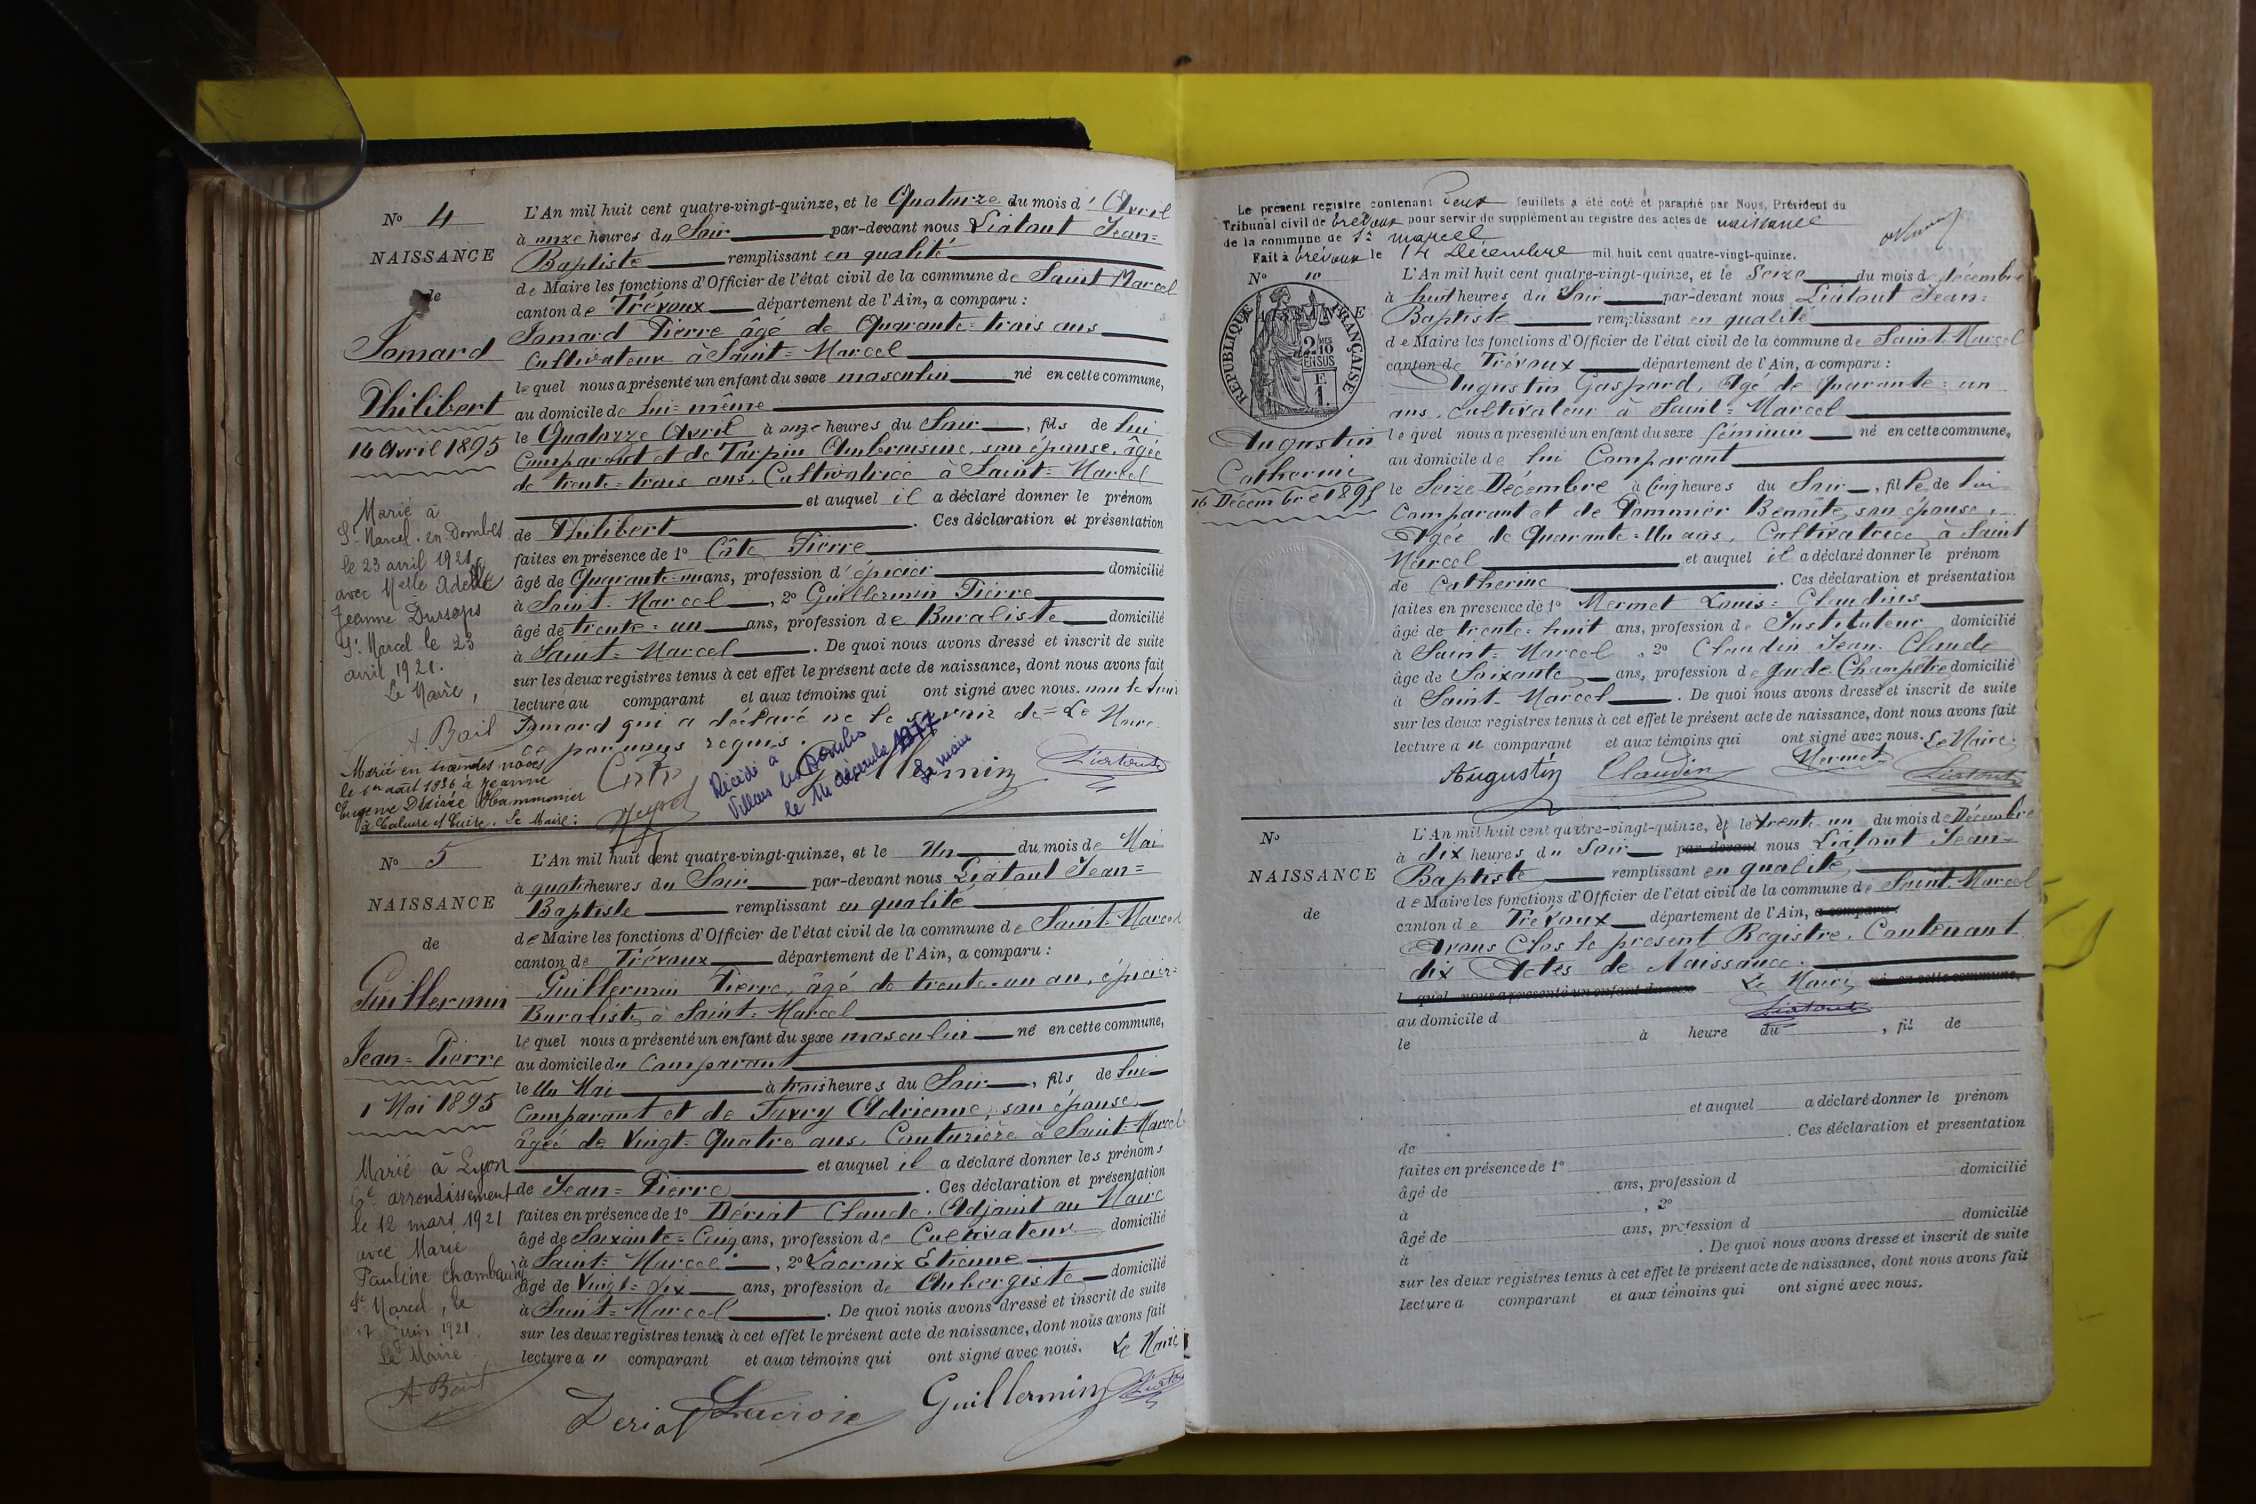 N° 4
NAISSANCE
de
Jomard
Philibert
14 Avril 1895
Marié à
St Marcel-en-Dombes
le 23 avril 1921
avec Melle Adèle
Jeanne
St Marcel le 23
avril 1921.
Le Maire,
A. Bail
Marié en secondes noces
le 1er août 1936 à Jeanne
Eugénie Désirée
à Caluire et Cuire. Le Maire :
L'An mil huit cent quatre-vingt-quinze, et le Quatorze du mois d' Avril
à onze heures du Soir par-devant nous Liatout Jean=
Baptiste remplissant en qualité
de Maire les fonctions d'Officier de l'état civil de la commune de Saint Marcel
canton de Trévoux département de l'Ain, a comparu :
Jomard Pierre âgé de Quarante=trois ans
Cultivateur à Saint=Marcel
lequel nous a présenté un enfant du sexe masculin né en cette commune,
au domicile de lui=même
le Quatorze Avril à onze heures du Soir, fils de lui
Comparant et de Tarpin Ambroisine, son épouse, âgée
de trente=trois ans, Cultivatrice à Saint=Marcel
et auquel il a déclaré donner le prénom
de Philibert. Ces déclaration et présentation
faites en présence de 1° Côte Pierre
âgé de Quarante-un ans, profession d'épicier domicilié
à Saint-Marcel, 2° Guillermin Pierre
âgé de trente=un ans, profession de Buraliste domicilié
à Saint=Marcel. De quoi nous avons dressé et inscrit de suite
sur les deux registres tenus à cet effet le présent acte de naissance, dont nous avons fait
lecture au comparant et aux témoins qui ont signé avec nous. non le
Jomard qui a déclaré ne le savoir de= Le Maire
ce par nous requis.
Décédé à
Villars les Dombes
le 14 décembre 1977
Le maire
Liatout
N° 5
NAISSANCE
de
Guillermin
Jean=Pierre
1 Mai 1895
Marié à Lyon
6e arrondissement
le 12 mars 1921
avec Marie
Pauline Chambaud
St Marcel, le
17 Juin 1921
Le Maire
A. Bail
L'An mil huit cent quatre-vingt-quinze, et le Un du mois de Mai
à quatre heures du Soir par-devant nous Liatout Jean=
Baptiste remplissant en qualité
de Maire les fonctions d'Officier de l'état civil de la commune de Saint=Marcel
canton de Trévoux département de l'Ain, a comparu :
Guillermin Pierre, âgé de trente-un an, épicier=
Buraliste à Saint=Marcel
lequel nous a présenté un enfant du sexe masculin né en cette commune,
au domicile du Comparant
le Un Mai à trois heures du Soir, fils de lui
Comparant et de Favry Adrienne, son épouse
âgée de Vingt-Quatre ans, Couturière à Saint=Marcel
et auquel il a déclaré donner les prénoms
de Jean=Pierre. Ces déclaration et présentation
faites en présence de 1° Dériat Claude, Adjoint au Maire
âgé de Soixante=Cinq ans, profession de Cultivateur domicilié
à Saint=Marcel, 2° Lacroix Etienne
âgé de Vingt-Six ans, profession de Aubergiste domicilié
à Saint=Marcel. De quoi nous avons dressé et inscrit de suite
sur les deux registres tenus à cet effet le présent acte de naissance, dont nous avons fait
lecture a u comparant et aux témoins qui ont signé avec nous. Le Maire
Deriat Lacroix Guillermin Liatout
Le présent registre contenant Deux feuillets a été coté et paraphé par Nous, Président du
Tribunal civil de Trévoux pour servir de supplément au registre des actes de naissance
de la commune de St Marcel
Fait à Trévoux le 14 Décembre mil huit cent quatre-vingt-quinze.
N° 10
RÉPUBLIQUE FRANÇAISE
2 10
EN SUS
F.
1.
Augustin
Catherine
16 Décembre 1895
L'An mil huit cent quatre-vingt-quinze, et le Seize du mois de Décembre
à huit heures du Soir par-devant nous Liatout Jean=
Baptiste remplissant en qualité
de Maire les fonctions d'Officier de l'état civil de la commune de Saint-Marcel
canton de Trévoux département de l'Ain, a comparu :
Augustin Gaspard, Agé de quarante=un
ans, cultivateur à Saint=Marcel
lequel nous a présenté un enfant du sexe féminin né en cette commune,
au domicile de lui Comparant
le Seize Décembre à Cinq heures du Soir, fille de lui
Comparant et de Pommier Benoite, son épouse,
Agée de Quarante=Un ans, Cultivatrice à Saint
Marcel et auquel il a déclaré donner le prénom
de Catherine. Ces déclaration et présentation
faites en présence de 1° Mermet Louis=Claudius
âgé de trente=huit ans, profession de Instituteur domicilié
à Saint=Marcel, 2° Claudin Jean-Claude
âgé de Soixante ans, profession de garde Champêtre domicilié
à Saint-Marcel. De quoi nous avons dressé et inscrit de suite
sur les deux registres tenus à cet effet le présent acte de naissance, dont nous avons fait
lecture a u comparant et aux témoins qui ont signé avec nous. Le Maire.
Augustin Claudin Mermet Liatout
N°
NAISSANCE
de
L'An mil huit cent quatre-vingt-quinze, et le trente un du mois de Décembre
à dix heures du Soir par-devant nous Liatout Jean=
Baptiste remplissant en qualité
de Maire les fonctions d'Officier de l'état civil de la commune de Saint-Marcel
canton de Trévoux département de l'Ain, a comparu :
Avons Clos le présent Registre, Contenant
dix Actes de Naissance.
lequel nous a présenté un enfant du sexe Le Maire né en cette commune,
Liatout
au domicile d
le à heure du , fil de
et auquel a déclaré donner le prénom
de . Ces déclaration et présentation
faites en présence de 1°
âgé de ans, profession d domicilié
à , 2°
âgé de ans, profession d domicilié
à . De quoi nous avons dressé et inscrit de suite
sur les deux registres tenus à cet effet le présent acte de naissance, dont nous avons fait
lecture a comparant et aux témoins qui ont signé avec nous.